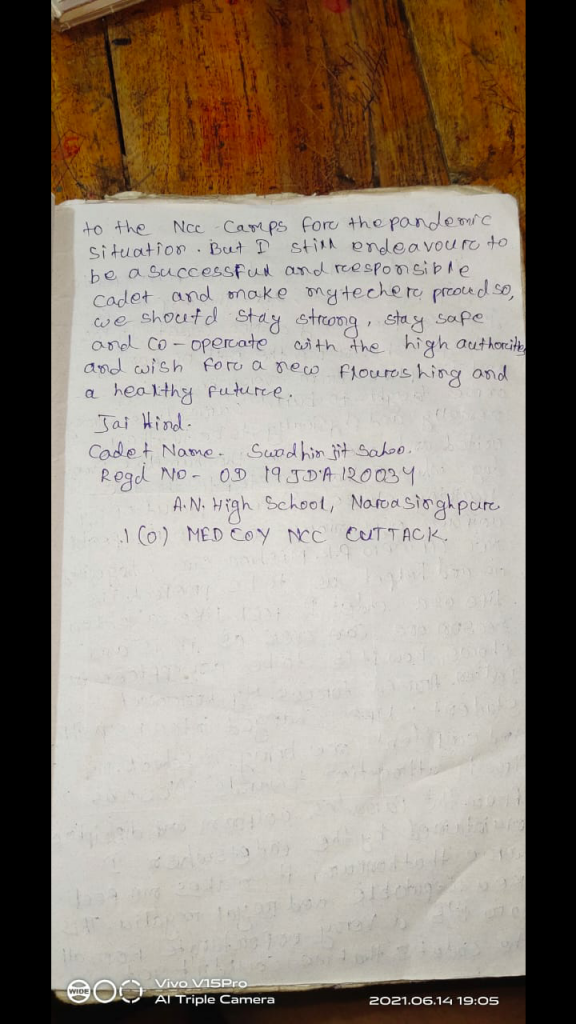 to the Ncc Camps for the pandemic
situation. But I still endeavour to
be a successful and responsible
cadet and make my techer proud so,
we should stay strong, stay safe
and co-operate with the high authorities
and wish for a new flouroshing and
a healthy future.
Jai Hind.
Cadet Name- Swadhin jit Sahoo.
Regd NO- OD 19 JDA 120034
A.N. High School, Narasinghpur
1 (O) MED COY NCC CUTTACK.
WIDE
Vivo V15Pro
AI Triple Camera
2021.06.14 19:05